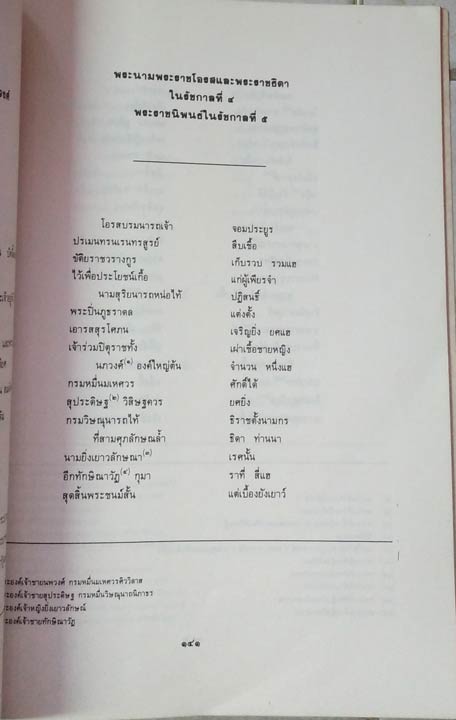 พระนามพระราชโอรสและพระราชธิดา
ในรัชกาลที่ ๔
พระราชนิพนธ์ในรัชกาลที่ ๕
โอรสบรมนารถเจ้า จอมประยูร
ปรเมนทรนเรนทรสูรย์ สืบเชื้อ
ขัติยราชวรางกูร เก็บรวบ รวมแฮ
ไว้เพื่อประโยชน์เกื้อ แก่ผู้เพียรจำ
นามสุริยนารถหน่อไท้ ปฏิสนธิ์
พระปิ่นภูธราดล แต่งตั้ง
เอารสสุรโศภน เจริญยิ่ง ยศแฮ
เจ้าร่วมปิตุราชทั้ง เผ่าเชื้อชายหญิง
นภวงศ์(๑) องค์ใหญ่ต้น จำนวน หนึ่งแฮ
กรมหมื่นมเหศวร ศักดิ์ได้
สุประดิษฐ(๒) วิสิษฐควร ยศยิ่ง
กรมวิษณุนารถไท้ ธิราชตั้งนามกร
ที่สามศุภลักษณล้ำ ธิดา ท่านนา
นามยิ่งเยาวลักษณา(๓) เรศนั้น
อีกทักษิณาวัฏ(๔) กุมา ราที่ สี่แฮ
สุดสิ้นพระชนม์สั้น แต่เบื้องยังเยาว์
ะองค์เจ้าชายนพวงศ์ กรมหมื่นมเหศวรศิววิลาส
ะองค์เจ้าชายสุประดิษฐ กรมหมื่นวิษณุนาถนิภาธร
ะองค์เจ้าหญิงยิ่งเยาวลักษณ์
ะองค์เจ้าชายทักษิณาวัฏ
๑๔๑